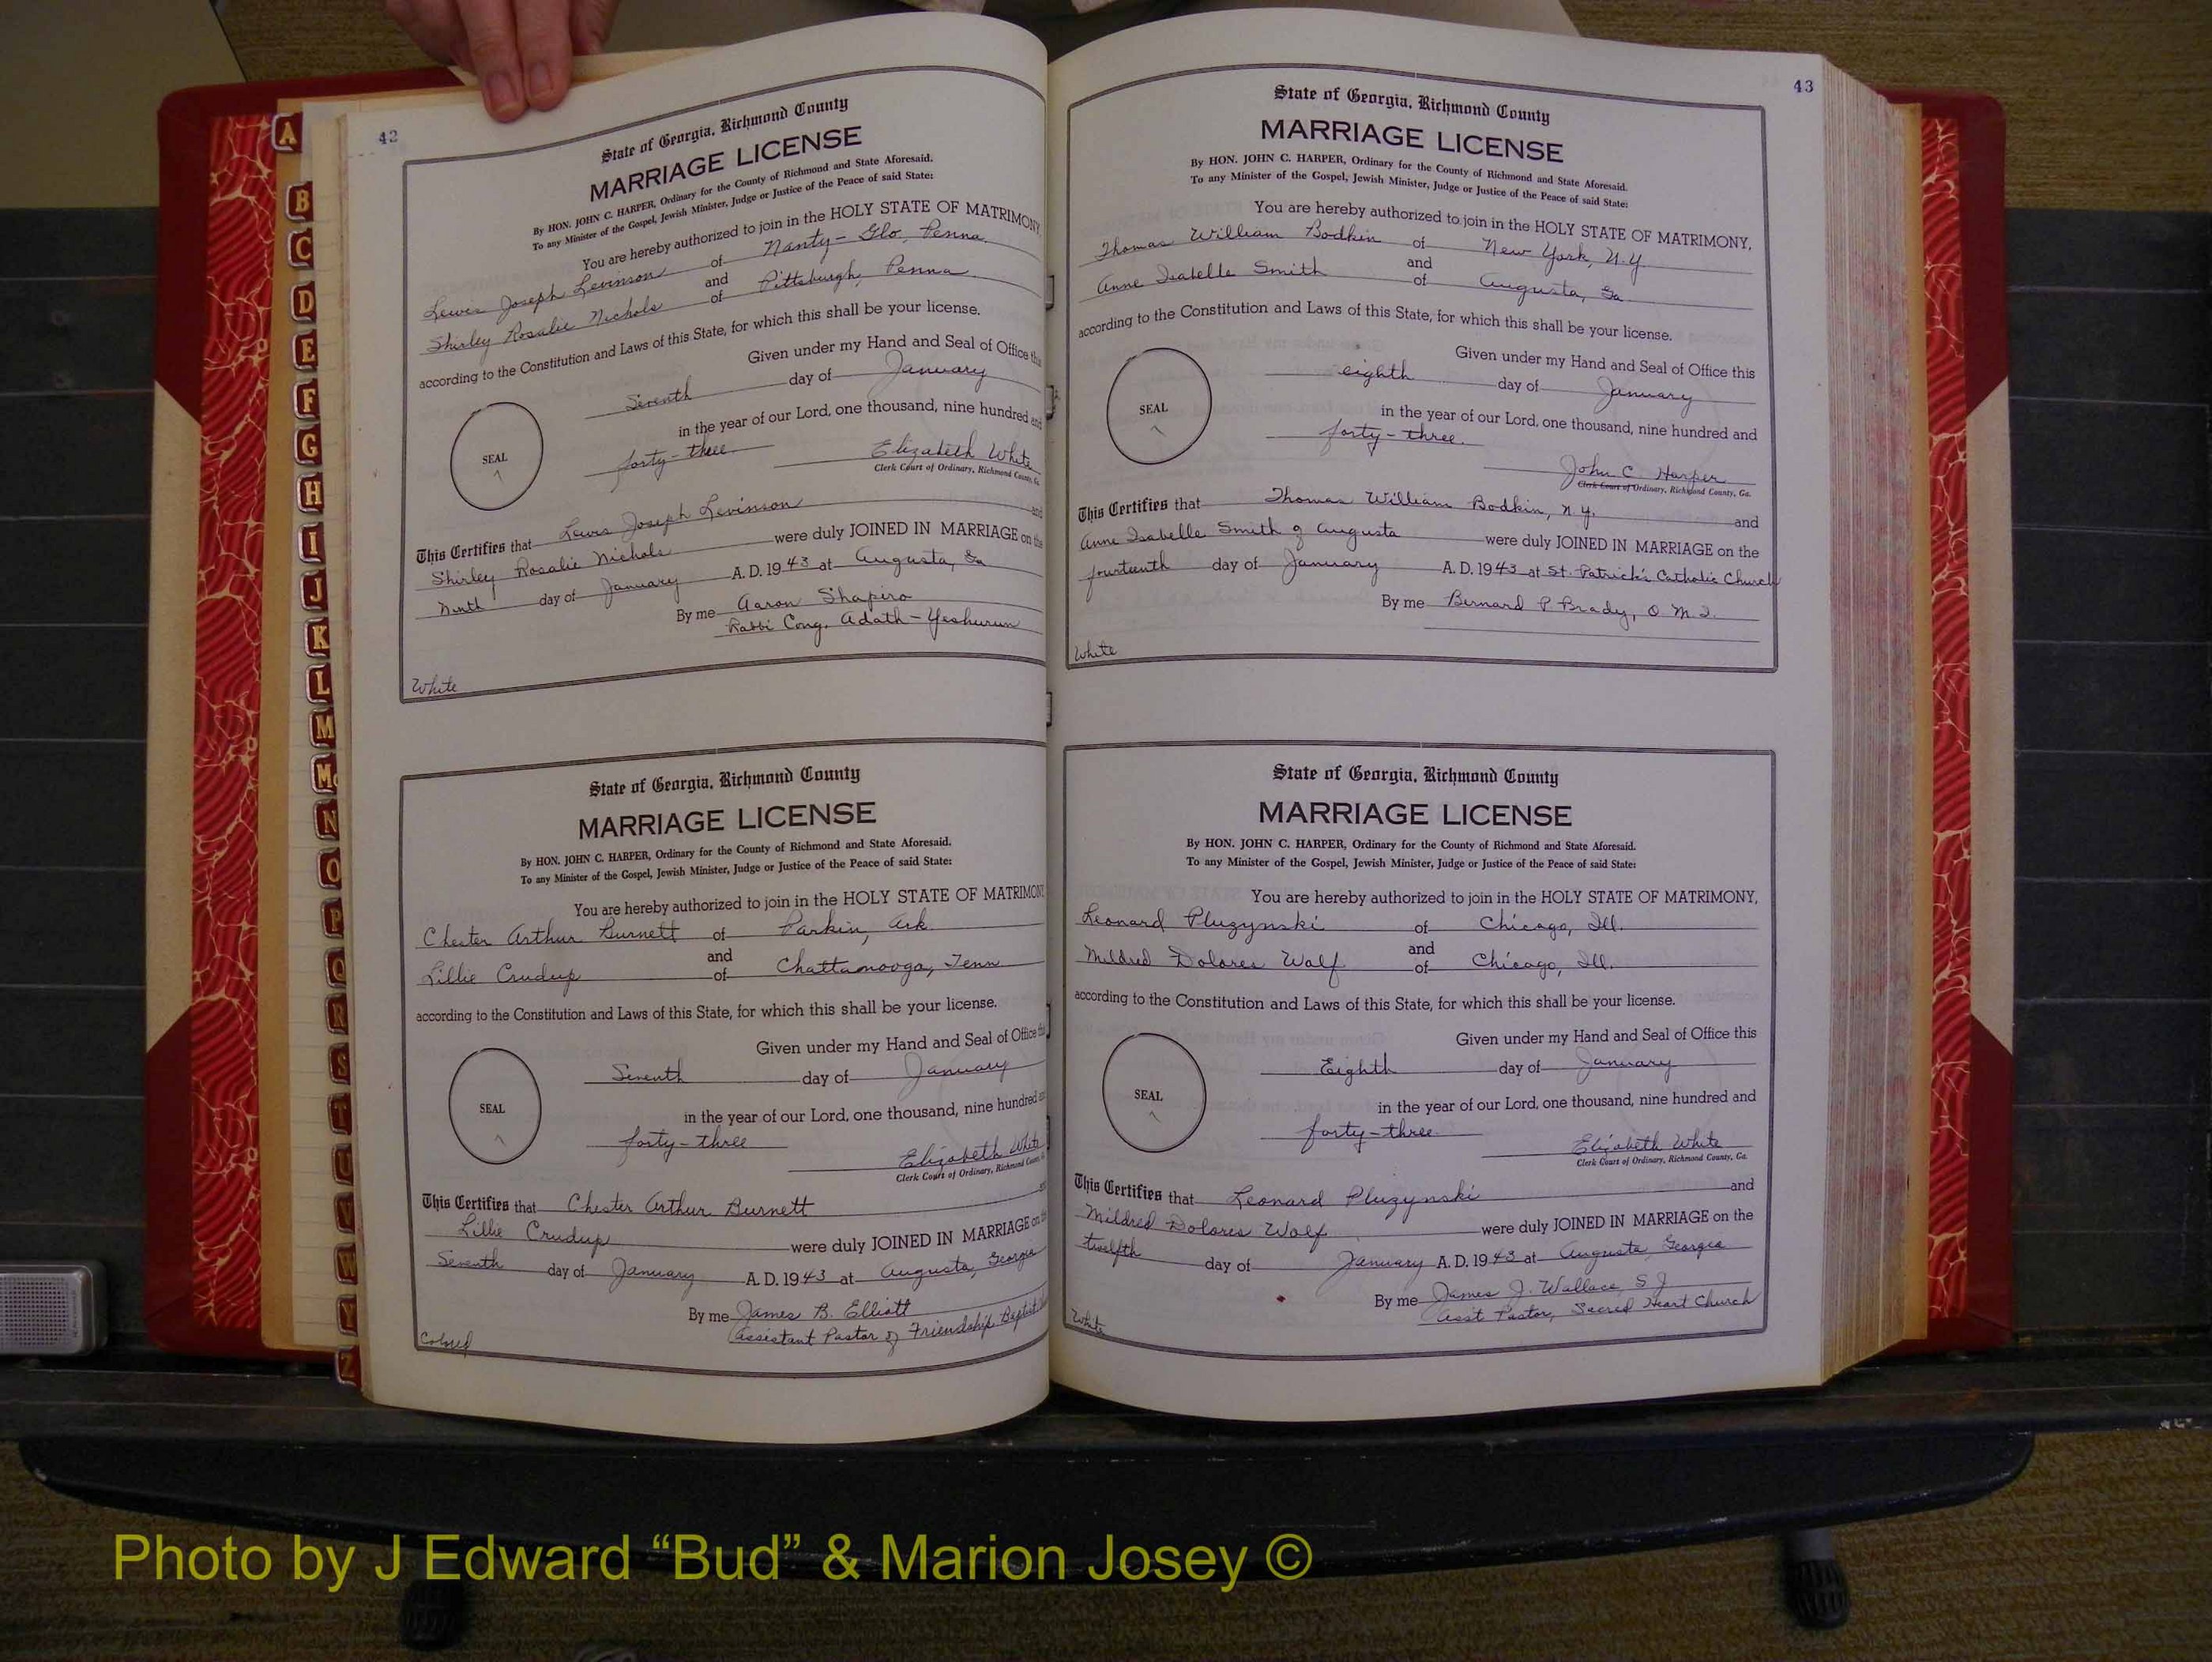 42
State of Georgia, Richmond County
MARRIAGE LICENSE
By HON. JOHN C. HARPER, Ordinary for the County of Richmond and State Aforesaid.
To any Minister of the Gospel, Jewish Minister, Judge or Justice of the Peace of said State:
You are hereby authorized to join in the HOLY STATE OF MATRIMONY,
Lewis Joseph Levinson of Nanty-Glo, Penna.
and
Shirley Rosalie Nichols of Pittsburgh, Penna
according to the Constitution and Laws of this State, for which this shall be your license.
Given under my Hand and Seal of Office this
Seventh day of January
in the year of our Lord, one thousand, nine hundred and
SEAL
forty-three. Elizabeth White
Clerk Court of Ordinary, Richmond County, Ga.
This Certifies that Lewis Joseph Levinson and
Shirley Rosalie Nichols were duly JOINED IN MARRIAGE on the
Ninth day of January A. D. 1943 at Augusta, Ga
By me Aaron Shapiro
Rabbi Cong. Adath-Yeshurun
White
State of Georgia, Richmond County
MARRIAGE LICENSE
By HON. JOHN C. HARPER, Ordinary for the County of Richmond and State Aforesaid.
To any Minister of the Gospel, Jewish Minister, Judge or Justice of the Peace of said State:
You are hereby authorized to join in the HOLY STATE OF MATRIMONY,
Chester Arthur Burnett of Parkin, Ark.
and
Lillie Crudup of Chattanooga, Tenn
according to the Constitution and Laws of this State, for which this shall be your license.
Given under my Hand and Seal of Office this
Seventh day of January
SEAL
in the year of our Lord, one thousand, nine hundred and
forty-three Elizabeth White
Clerk Court of Ordinary, Richmond County, Ga.
This Certifies that Chester Arthur Burnett and
Lillie Crudup were duly JOINED IN MARRIAGE on the
Seventh day of January A. D. 1943 at Augusta, Georgia
By me James B. Elliott
Assistant Pastor of Friendship Baptist
Colored
43
State of Georgia, Richmond County
MARRIAGE LICENSE
By HON. JOHN C. HARPER, Ordinary for the County of Richmond and State Aforesaid.
To any Minister of the Gospel, Jewish Minister, Judge or Justice of the Peace of said State:
You are hereby authorized to join in the HOLY STATE OF MATRIMONY,
Thomas William Bodkin of New York, N.Y.
and
Anne Isabelle Smith of Augusta, Ga.
according to the Constitution and Laws of this State, for which this shall be your license.
Given under my Hand and Seal of Office this
eighth day of January
SEAL
in the year of our Lord, one thousand, nine hundred and
forty-three.
John C. Harper
Clerk Court of Ordinary, Richmond County, Ga.
This Certifies that Thomas William Bodkin, N.Y. and
Anne Isabelle Smith of Augusta were duly JOINED IN MARRIAGE on the
fourteenth day of January A. D. 1943 at St. Patrick's Catholic Church
By me Bernard P Brady, O M I.
White
State of Georgia, Richmond County
MARRIAGE LICENSE
By HON. JOHN C. HARPER, Ordinary for the County of Richmond and State Aforesaid.
To any Minister of the Gospel, Jewish Minister, Judge or Justice of the Peace of said State:
You are hereby authorized to join in the HOLY STATE OF MATRIMONY,
Leonard Pluzynski of Chicago, Ill.
and
Mildred Dolores Wolf of Chicago, Ill.
according to the Constitution and Laws of this State, for which this shall be your license.
Given under my Hand and Seal of Office this
Eighth day of January
SEAL
in the year of our Lord, one thousand, nine hundred and
forty-three. Elizabeth White
Clerk Court of Ordinary, Richmond County, Ga.
This Certifies that Leonard Pluzynski and
Mildred Dolores Wolf were duly JOINED IN MARRIAGE on the
twelfth day of January A. D. 1943 at Augusta, Georgia
By me James J. Wallace, S J
Asst Pastor, Sacred Heart Church
White
A
B
C
D
E
F
G
H
I
J
K
L
M
Mc
N
O
P
Q
R
S
T
U
V
W
Y
Z
Photo by J Edward “Bud” & Marion Josey ©